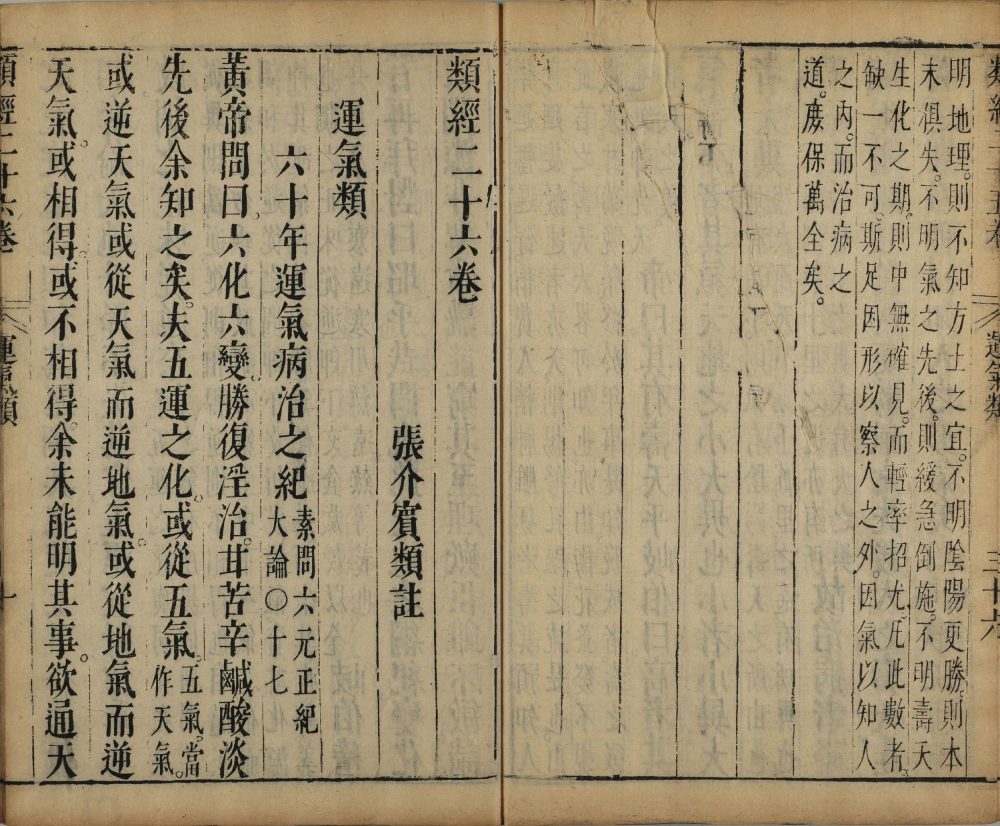 類經二十五卷 運氣類 三十六
明地理則不知方土之宜。不明陰陽更勝則本
末俱失。不明氣之先後。則緩急倒施。不明壽夭
生化之期。則中無確見。而輕率招尤。凡此數者。
缺一不可。斯足因形以察人之外。因氣以知人
之內。而治病之
道。庶保萬全矣。
類經二十六卷
張介賓類註
運氣類
六十年運氣病治之紀 素問六元正紀
大論○十七
黃帝問曰。六化六變。勝復淫治。甘苦辛鹹酸淡
先後余知之矣。夫五運之化。或從五氣。五氣。當
作天氣。
或逆天氣。或從天氣而逆地氣。或從地氣而逆
天氣。或相得。或不相得。余未能明其事。欲通天
類經二十六卷 運氣類 一